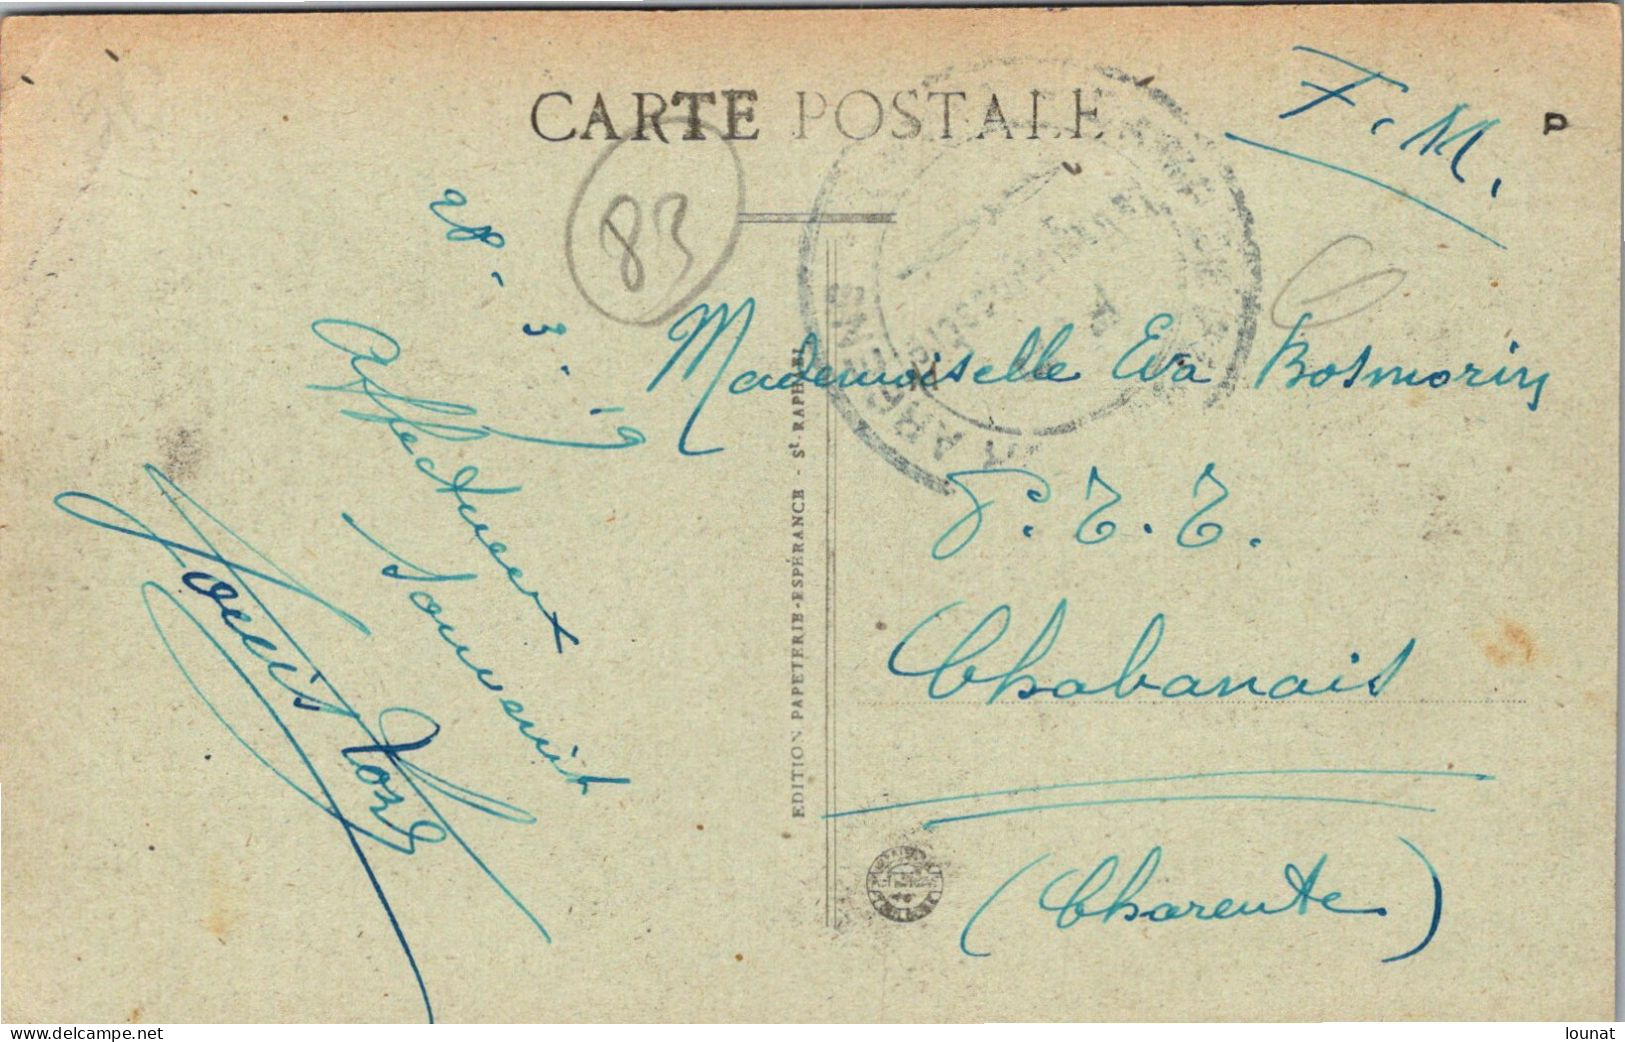 CARTE POSTALE
F. M.
P
83
28 - 3 - 19
Affectueux
Souvenir
Mademoiselle Eva Bosmorin
P. T. T.
Chabanais
(Charente)
EDITION PAPETERIE-ESPÉRANCE - St-RAPHAEL
www.delcampe.net
lounat